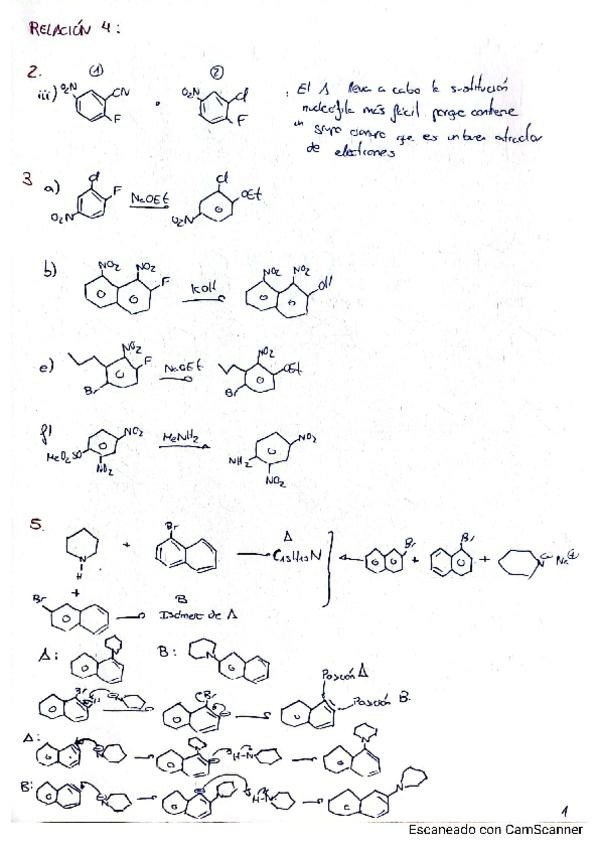 RELACIÓN 4:
2.
① ②
iii) O₂N CN F . O₂N Cl F
. El 1 lleva a cabo la sustitución
nucleófila más fácil porque contiene
un grupo ciano que es un buen atractor
de electrones
3 a) Cl F O₂N NaOEt Cl OEt O₂N
b) NO₂ NO₂ F KOH NO₂ NO₂ OH
e) NO₂ F Br NaOEt NO₂ OEt Br
f) NO₂ MeO₂SO NO₂ MeNH₂ NO₂ NH₂ NO₂
5.
N H + Br A C₁₅H₁₇N Br + Br + N⊖ Na⊕
+
Br B
Isómero de A
A: N B: N
Br Br Posición A
Posición B
A: N H-N N
B: N N H-N N
1
Escaneado con CamScanner